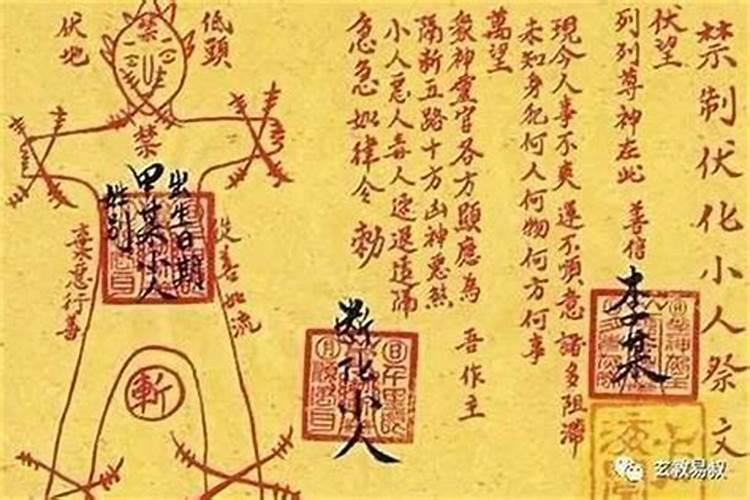 禁制伏化小人祭文
伏望
列列尊神在此 善信
李某
現今人事不爽運不順意諸多阻滯
未知身犯何人何物何方何事
萬望
眾神靈官各方顯應為 吾作主
隔斬五路十方凶神惡煞
小人惡人毒人速退遠隔
急急如律令 勅
斷化小人
低頭
伏地
禁
禁
出生日期
甲某小人
姓别
從善如流
棄惡行善
斬
玄教易叔